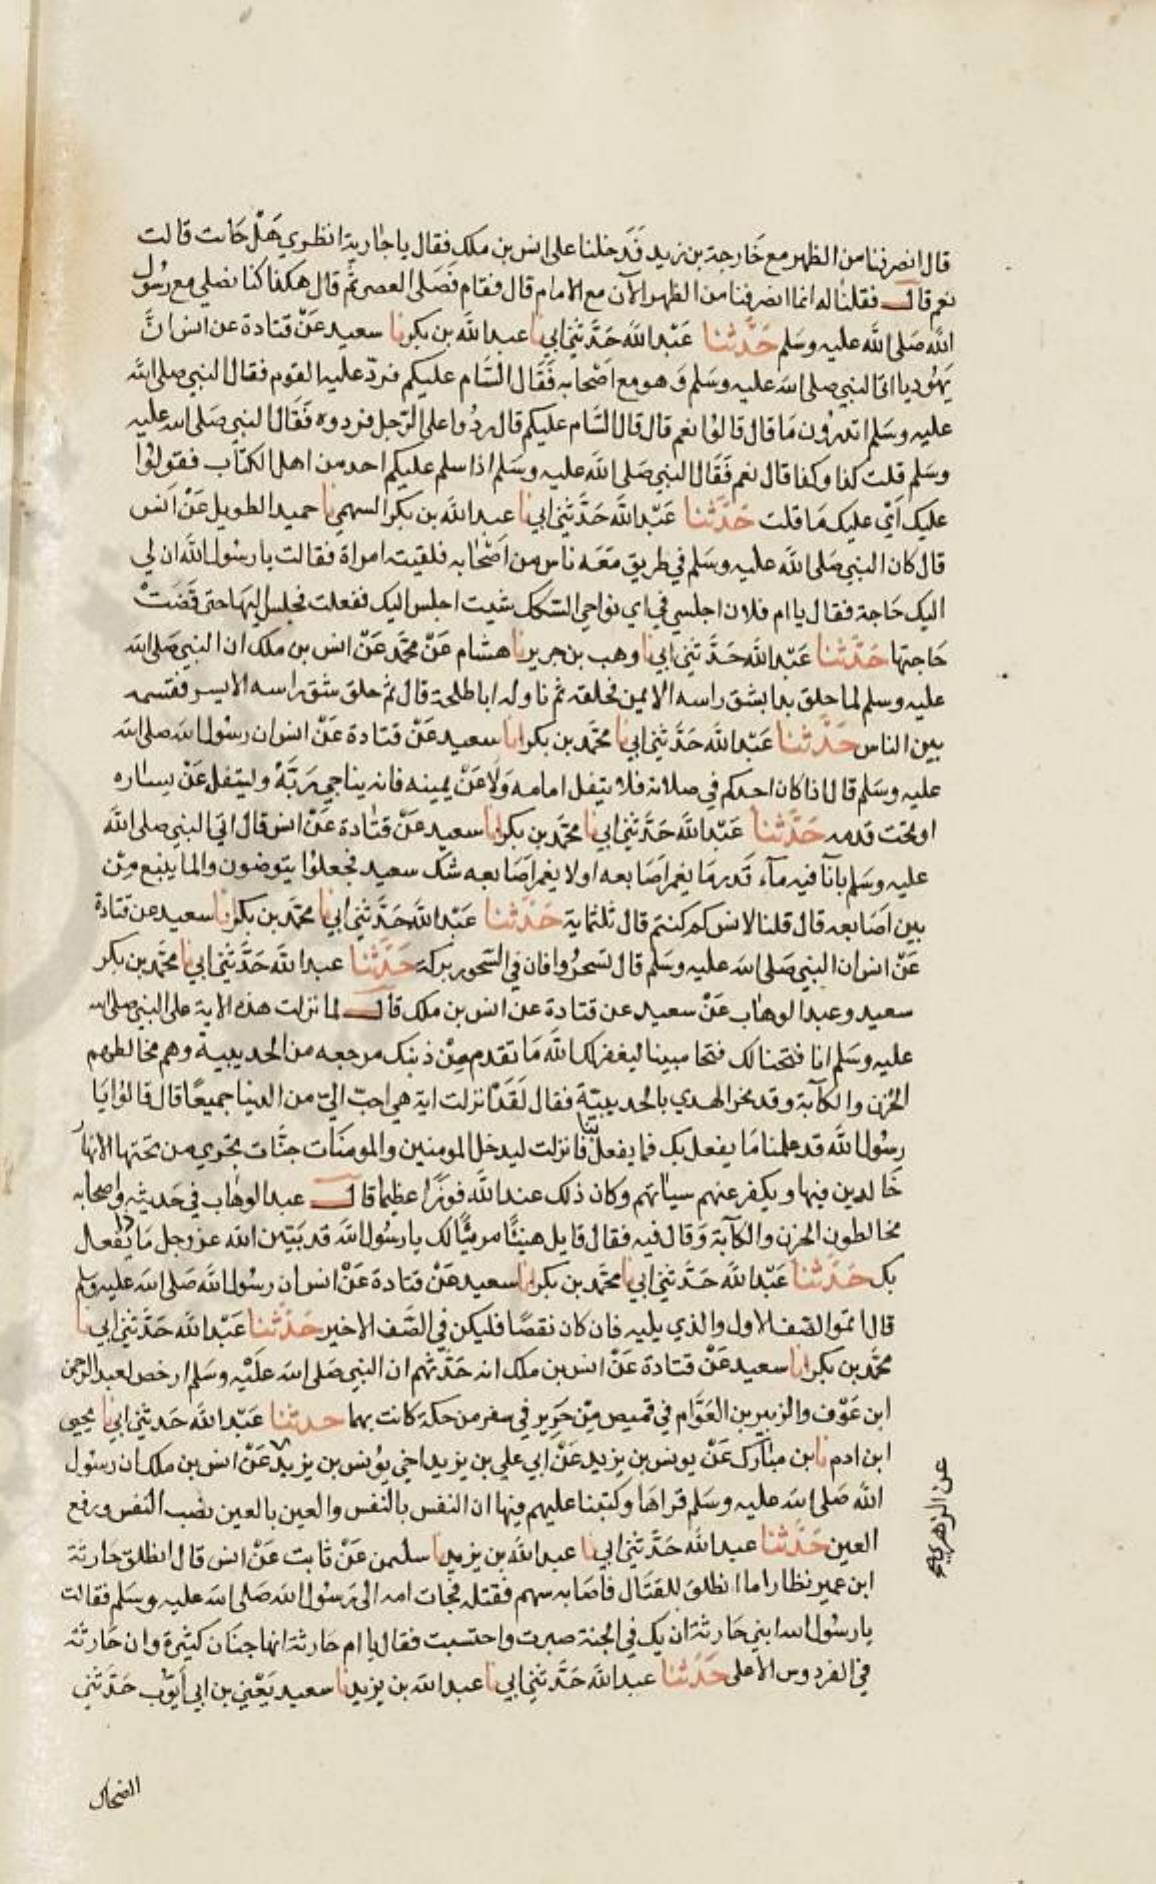 قال انصرفنا من الظهر مع خارجة بن زيد فدخلنا على انس بن ملك فقال يا جارية انظري هل حانت قالت
نعم قال فقلنا له انما انصرفنا من الظهر الآن مع الامام قال فقام فصلى العصر ثم قال هكذا كنا نصلي مع رسول
الله صلى الله عليه وسلم حدثنا عبد الله حدثني ابي نا عبد الله بن بكر نا سعيد عن قتادة عن انس ان
يهوديا اتى النبي صلى الله عليه وسلم وهو مع اصحابه فقال السام عليكم فرد عليه القوم فقال النبي صلى الله
عليه وسلم اتدرون ما قال قالوا نعم قال قال السام عليكم قال ردوا علي الرجل فردوه فقال النبي صلى الله عليه
وسلم قلت كذا وكذا قال نعم فقال النبي صلى الله عليه وسلم اذا سلم عليكم احد من اهل الكتاب فقولوا
عليك اي عليك ما قلت حدثنا عبد الله حدثني ابي نا عبد الله بن بكر السهمي نا حميد الطويل عن انس
قال كان النبي صلى الله عليه وسلم في طريق معه ناس من اصحابه فلقيته امراة فقالت يا رسول الله ان لي
اليك حاجة فقال يا ام فلان اجلسي في اي نواحي السكك شيت اجلس اليك ففعلت فجلس اليها حتى قضت
حاجتها حدثنا عبد الله حدثني ابي نا وهب بن جرير نا هشام عن محمد عن انس بن ملك ان النبي صلى الله
عليه وسلم لما حلق بدا بشق راسه الايمن فحلقه ثم ناوله ابا طلحة قال ثم حلق شق راسه الايسر فقسمه
بين الناس حدثنا عبد الله حدثني ابي نا محمد بن بكر انا سعيد عن قتادة عن انس ان رسول الله صلى الله
عليه وسلم قال اذا كان احدكم في صلاته فلا يتفل امامه ولا عن يمينه فانه يناجي ربه وليتفل عن يساره
او تحت قدمه حدثنا عبد الله حدثني ابي نا محمد بن بكر انا سعيد عن قتادة عن انس قال اتي النبي صلى الله
عليه وسلم بانآ فيه مآء قدر ما يغمر اصابعه او لا يغمر اصابعه شك سعيد فجعلوا يتوضون والما ينبع من
بين اصابعه قال قلنا لانس كم كنتم قال ثلثماية حدثنا عبد الله حدثني ابي نا محمد بن بكر انا سعيد عن قتادة
عن انس ان النبي صلى الله عليه وسلم قال تسحروا فان في السحور بركة حدثنا عبد الله حدثني ابي نا محمد بن بكر
سعيد وعبد الوهاب عن سعيد عن قتادة عن انس بن ملك قال لما نزلت هذه الاية على النبي صلى الله
عليه وسلم انا فتحنا لك فتحا مبينا ليغفر لك الله ما تقدم من ذنبك مرجعه من الحديبية وهم مخالطهم
الحزن والكآبة وقد نحر الهدي بالحديبية فقال لقد انزلت اية هي احب الي من الدنيا جميعا قال قالوا يا
رسول الله قد علمنا ما يفعل بك فما يفعل بنا فانزلت ليدخل المومنين والمومنات جنات تجري من تحتها الانهار
خالدين فيها ويكفر عنهم سياتهم وكان ذلك عند الله فوزا عظيما قال عبد الوهاب في حديثه واصحابه
مخالطون الحزن والكآبة وقال فيه فقال قايل هنيئا مريئا لك يا رسول الله قد بين الله عز وجل ماذا يفعل
بك حدثنا عبد الله حدثني ابي نا محمد بن بكر انا سعيد عن قتادة عن انس ان رسول الله صلى الله عليه وسلم
قال اتموا الصف الاول والذي يليه فان كان نقصا فليكن في الصف الاخير حدثنا عبد الله حدثني ابي نا
محمد بن بكر انا سعيد عن قتادة عن انس بن ملك انه حدثهم ان النبي صلى الله عليه وسلم ارخص لعبد الرحمن
ابن عوف والزبير بن العوام في قميص من حرير في سفر من حكة كانت بهما حدثنا عبد الله حدثني ابي نا يحيى
ابن ادم نا ابن مبارك عن يونس بن يزيد عن ابي علي بن يزيد اخي يونس بن يزيد عن انس بن ملك ان رسول
الله صلى الله عليه وسلم قراها وكتبنا عليهم فيها ان النفس بالنفس والعين بالعين نصب النفس ورفع
العين حدثنا عبد الله حدثني ابي نا عبد الله بن يزيد نا سليمن عن ثابت عن انس قال انطلق حارثة
ابن عمير نظارا ما انطلق للقتال فاصابه سهم فقتله فجات امه الى رسول الله صلى الله عليه وسلم فقالت
يا رسول الله ابني حارثة ان يك في الجنة صبرت واحتسبت فقال يا ام حارثة انها جنان كثيرة وان حارثة
في الفردوس الاعلى حدثنا عبد الله حدثني ابي نا عبد الله بن يزيد نا سعيد يعني بن ابي ايوب حدثني
عن الزهري صح
الضحاك